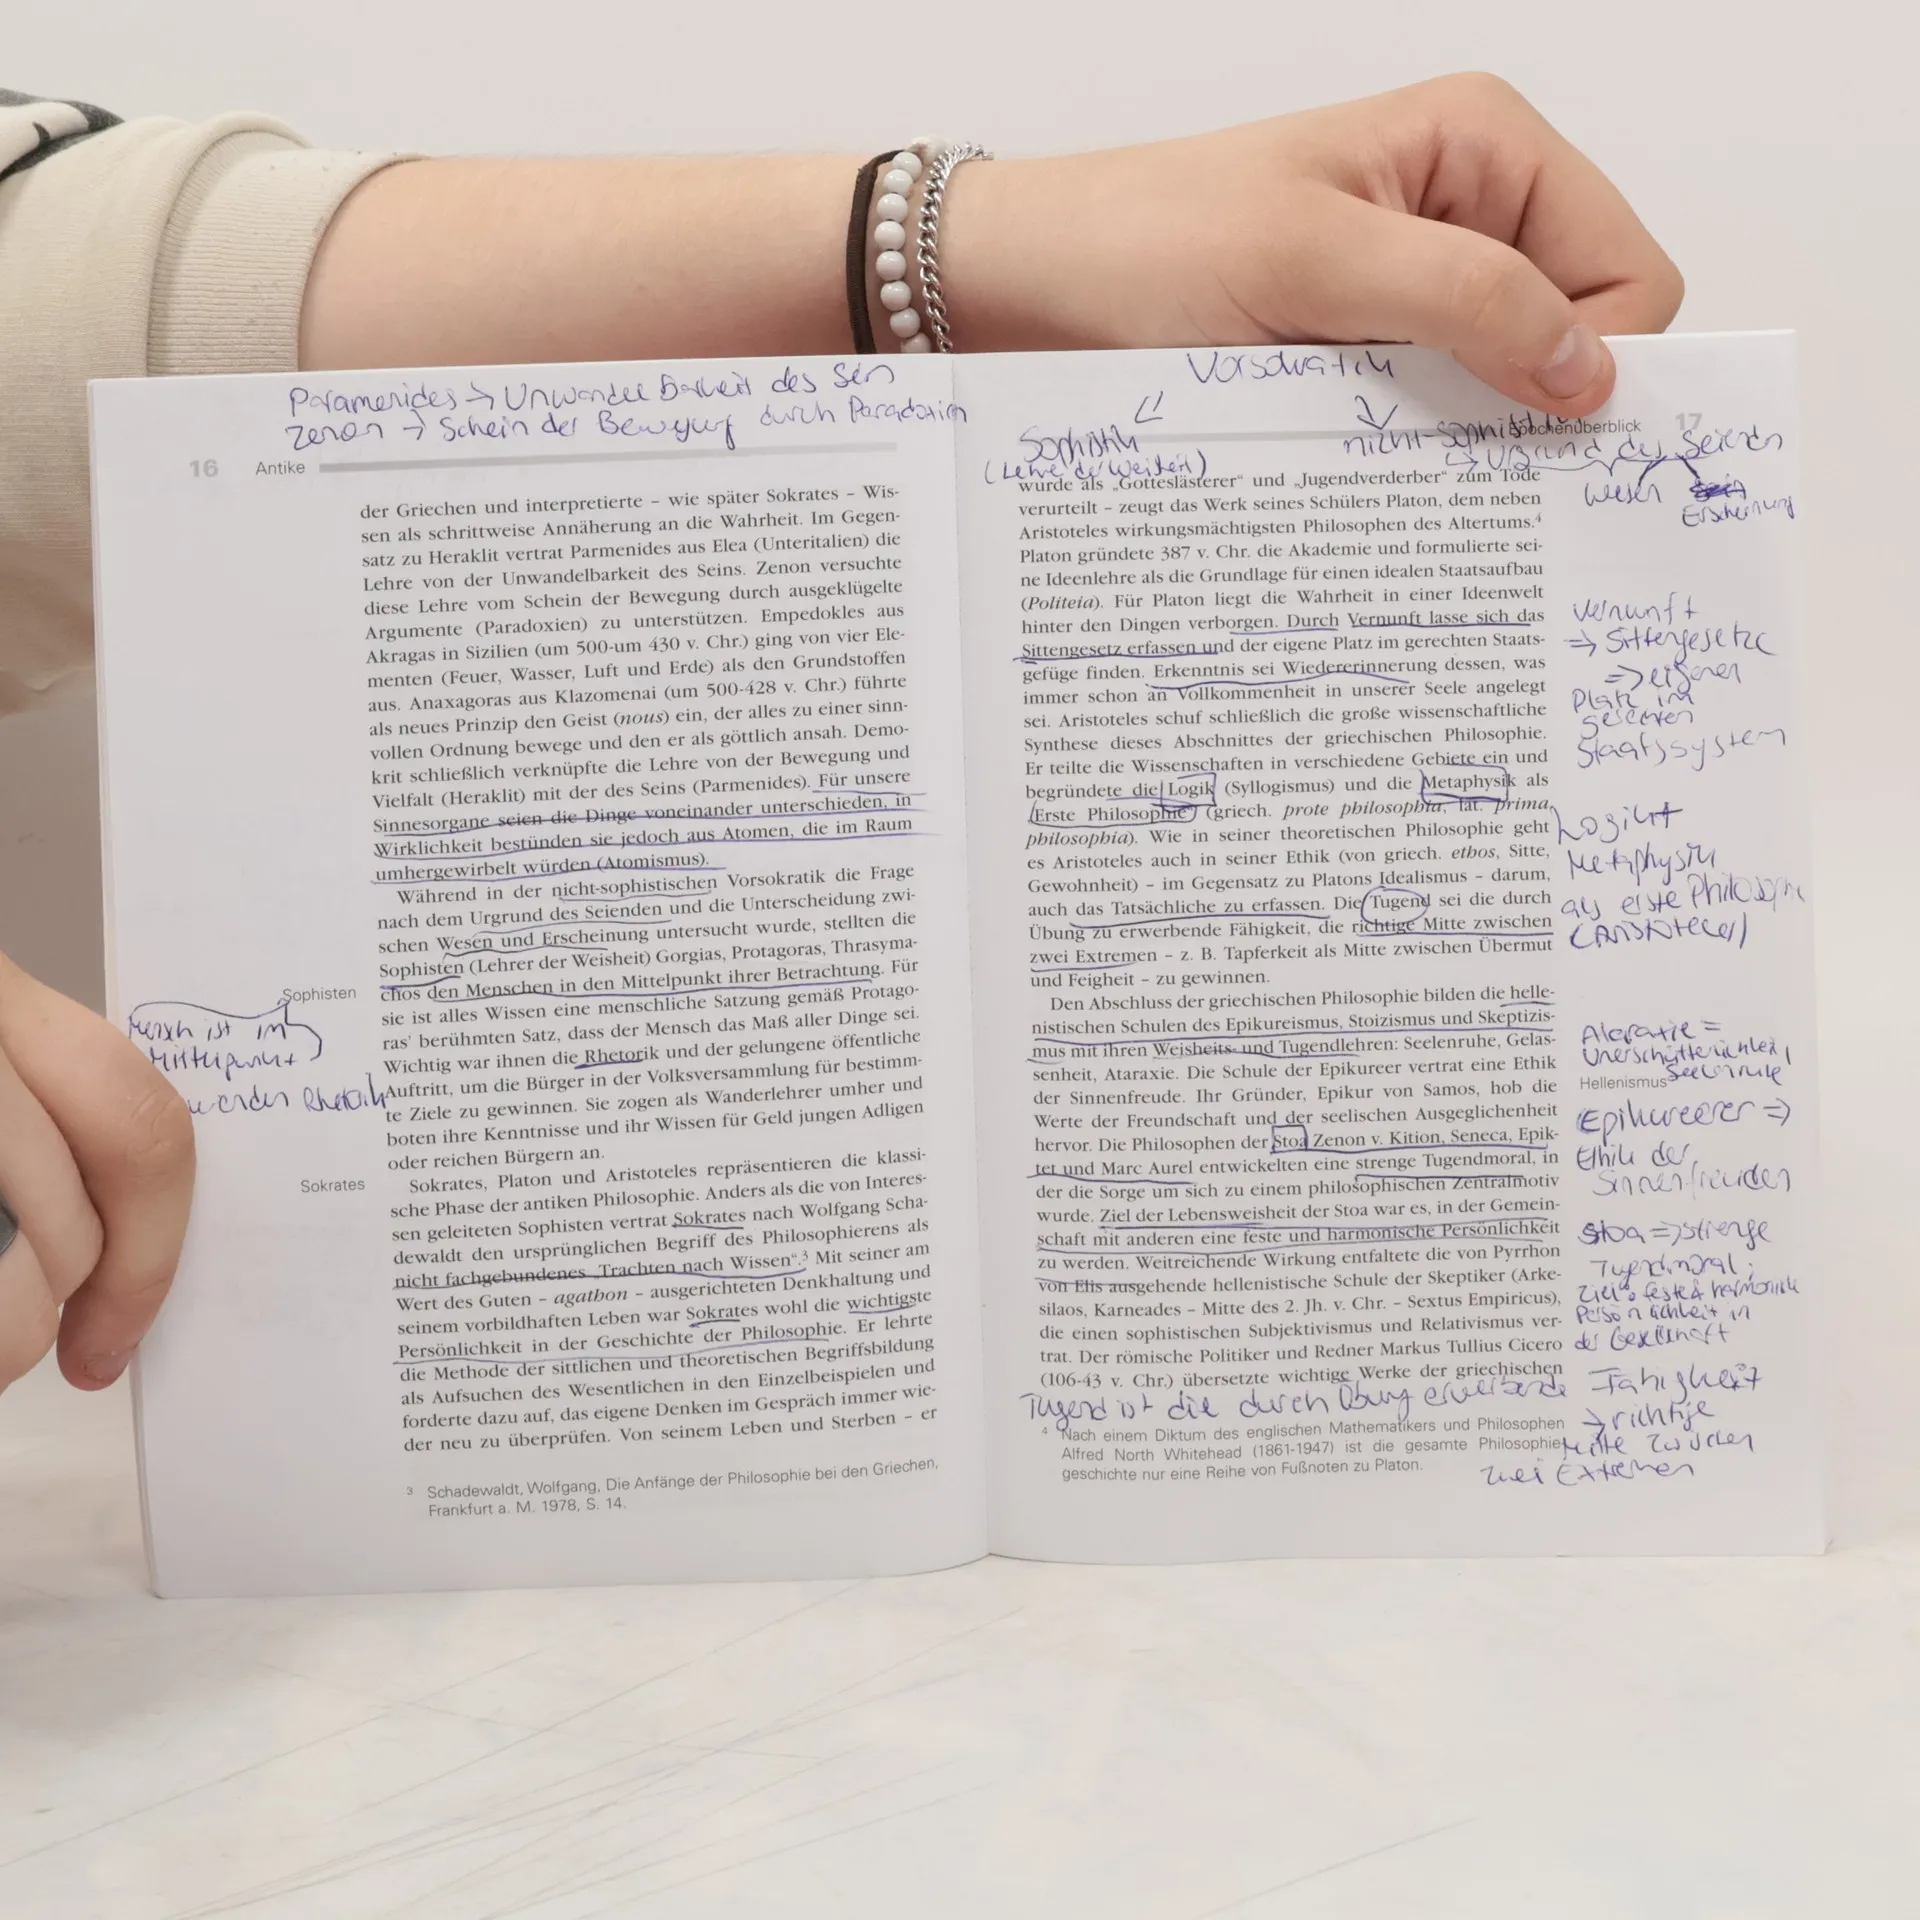 Paramenides → Unwandelbarkeit des Sein
Zenon → Schein der Bewegung durch Paradoxien
16 Antike
der Griechen und interpretierte – wie später Sokrates – Wis-
sen als schrittweise Annäherung an die Wahrheit. Im Gegen-
satz zu Heraklit vertrat Parmenides aus Elea (Unteritalien) die
Lehre von der Unwandelbarkeit des Seins. Zenon versuchte
diese Lehre vom Schein der Bewegung durch ausgeklügelte
Argumente (Paradoxien) zu unterstützen. Empedokles aus
Akragas in Sizilien (um 500-um 430 v. Chr.) ging von vier Ele-
menten (Feuer, Wasser, Luft und Erde) als den Grundstoffen
aus. Anaxagoras aus Klazomenai (um 500-428 v. Chr.) führte
als neues Prinzip den Geist (nous) ein, der alles zu einer sinn-
vollen Ordnung bewege und den er als göttlich ansah. Demo-
krit schließlich verknüpfte die Lehre von der Bewegung und
Vielfalt (Heraklit) mit der des Seins (Parmenides). Für unsere
Sinnesorgane seien die Dinge voneinander unterschieden, in
Wirklichkeit bestünden sie jedoch aus Atomen, die im Raum
umhergewirbelt würden (Atomismus).
Während in der nicht-sophistischen Vorsokratik die Frage
nach dem Urgrund des Seienden und die Unterscheidung zwi-
schen Wesen und Erscheinung untersucht wurde, stellten die
Sophisten (Lehrer der Weisheit) Gorgias, Protagoras, Thrasyma-
chos den Menschen in den Mittelpunkt ihrer Betrachtung. Für
sie ist alles Wissen eine menschliche Satzung gemäß Protago-
ras' berühmten Satz, dass der Mensch das Maß aller Dinge sei.
Wichtig war ihnen die Rhetorik und der gelungene öffentliche
Auftritt, um die Bürger in der Volksversammlung für bestimm-
te Ziele zu gewinnen. Sie zogen als Wanderlehrer umher und
boten ihre Kenntnisse und ihr Wissen für Geld jungen Adligen
oder reichen Bürgern an.
Sokrates, Platon und Aristoteles repräsentieren die klassi-
sche Phase der antiken Philosophie. Anders als die von Interes-
sen geleiteten Sophisten vertrat Sokrates nach Wolfgang Scha-
dewaldt den ursprünglichen Begriff des Philosophierens als
nicht fachgebundenes „Trachten nach Wissen“.³ Mit seiner am
Wert des Guten – agathon – ausgerichteten Denkhaltung und
seinem vorbildhaften Leben war Sokrates wohl die wichtigste
Persönlichkeit in der Geschichte der Philosophie. Er lehrte
die Methode der sittlichen und theoretischen Begriffsbildung
als Aufsuchen des Wesentlichen in den Einzelbeispielen und
forderte dazu auf, das eigene Denken im Gespräch immer wie-
der neu zu überprüfen. Von seinem Leben und Sterben – er
Sophisten
Mensch ist im
Mittelpunkt
Rhetorik
Sokrates
3 Schadewaldt, Wolfgang, Die Anfänge der Philosophie bei den Griechen,
Frankfurt a. M. 1978, S. 14.
Vorsokratik
Sophistik
(Lehre der Weisheit)
Epochenüberblick 17
→ Urgrund des Seienden
Wesen
Erscheinung
wurde als „Gotteslästerer“ und „Jugendverderber“ zum Tode
verurteilt – zeugt das Werk seines Schülers Platon, dem neben
Aristoteles wirkungsmächtigsten Philosophen des Altertums.⁴
Platon gründete 387 v. Chr. die Akademie und formulierte sei-
ne Ideenlehre als die Grundlage für einen idealen Staatsaufbau
(Politeia). Für Platon liegt die Wahrheit in einer Ideenwelt
hinter den Dingen verborgen. Durch Vernunft lasse sich das
Sittengesetz erfassen und der eigene Platz im gerechten Staats-
gefüge finden. Erkenntnis sei Wiedererinnerung dessen, was
immer schon an Vollkommenheit in unserer Seele angelegt
sei. Aristoteles schuf schließlich die große wissenschaftliche
Synthese dieses Abschnittes der griechischen Philosophie.
Er teilte die Wissenschaften in verschiedene Gebiete ein und
begründete die Logik (Syllogismus) und die Metaphysik als
Erste Philosophie (griech. prote philosophia, lat. prima
philosophia). Wie in seiner theoretischen Philosophie geht
es Aristoteles auch in seiner Ethik (von griech. ethos, Sitte,
Gewohnheit) – im Gegensatz zu Platons Idealismus – darum,
auch das Tatsächliche zu erfassen. Die Tugend sei die durch
Übung zu erwerbende Fähigkeit, die richtige Mitte zwischen
zwei Extremen – z. B. Tapferkeit als Mitte zwischen Übermut
und Feigheit – zu gewinnen.
Den Abschluss der griechischen Philosophie bilden die helle-
nistischen Schulen des Epikureismus, Stoizismus und Skeptizis-
mus mit ihren Weisheits- und Tugendlehren: Seelenruhe, Gelas-
senheit, Ataraxie. Die Schule der Epikureer vertrat eine Ethik
der Sinnenfreude. Ihr Gründer, Epikur von Samos, hob die
Werte der Freundschaft und der seelischen Ausgeglichenheit
hervor. Die Philosophen der Stoa Zenon v. Kition, Seneca, Epik-
tet und Marc Aurel entwickelten eine strenge Tugendmoral, in
der die Sorge um sich zu einem philosophischen Zentralmotiv
wurde. Ziel der Lebensweisheit der Stoa war es, in der Gemein-
schaft mit anderen eine feste und harmonische Persönlichkeit
zu werden. Weitreichende Wirkung entfaltete die von Pyrrhon
von Elis ausgehende hellenistische Schule der Skeptiker (Arke-
silaos, Karneades – Mitte des 2. Jh. v. Chr. – Sextus Empiricus),
die einen sophistischen Subjektivismus und Relativismus ver-
trat. Der römische Politiker und Redner Markus Tullius Cicero
(106-43 v. Chr.) übersetzte wichtige Werke der griechischen
Vernunft
⇒ Sittengesetze
⇒ eigenen
Platz im
gerechten
Staatssystem
Logik +
Metaphysik
als erste Philosophie
(Aristoteles)
Ataraxie =
Unerschütterlichkeit,
Seelenruhe
Hellenismus
Epikureer ⇒
Ethik der
Sinnenfreuden
Stoa ⇒ strenge
Tugendmoral;
Ziel: feste & harmonische
Persönlichkeit in
der Gesellschaft
Tugend ist die durch Übung erwerbende Fähigkeit
→ richtige
Mitte zwischen
zwei Extremen
4 Nach einem Diktum des englischen Mathematikers und Philosophen
Alfred North Whitehead (1861-1947) ist die gesamte Philosophie
geschichte nur eine Reihe von Fußnoten zu Platon.